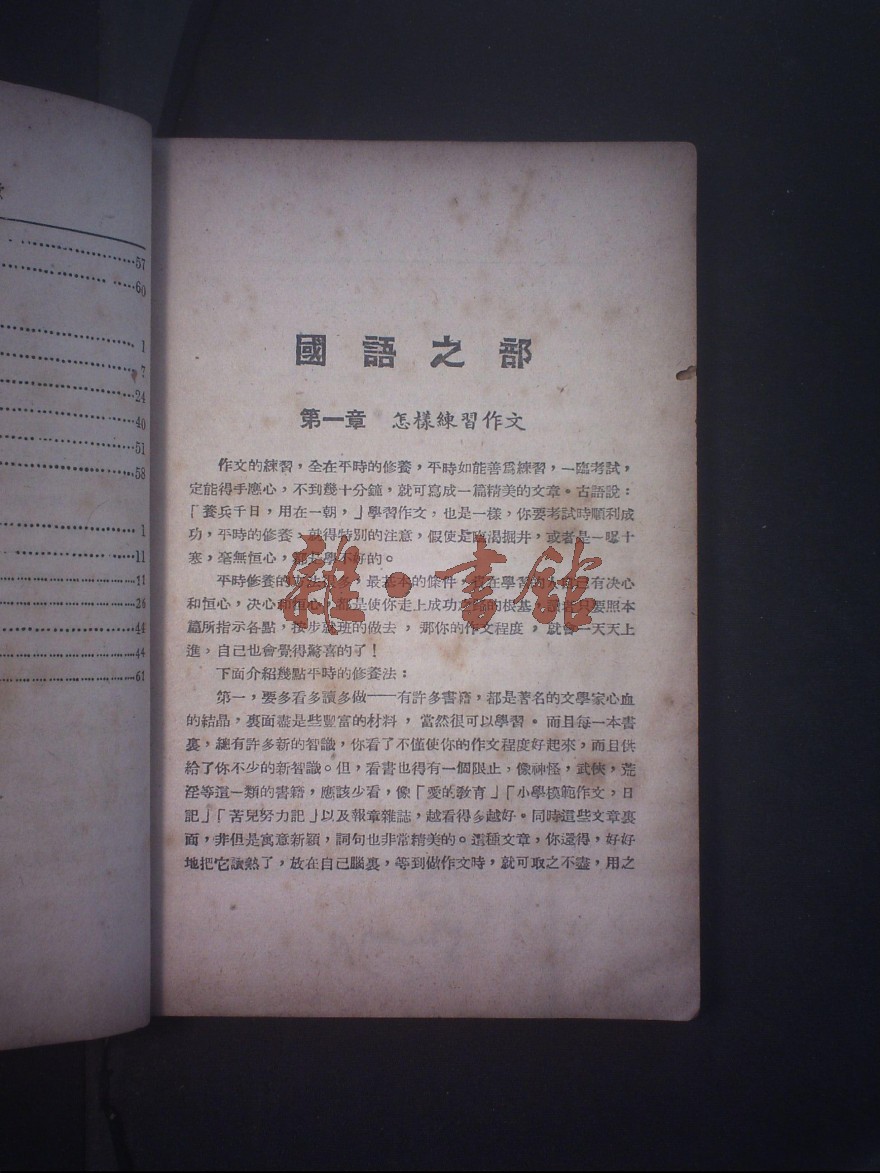 57
60
1
7
24
40
51
58
1
11
11
26
44
44
61
國語之部
第一章 怎樣練習作文
作文的練習，全在平時的修養，平時如能善爲練習，一臨考試，
定能得手應心，不到幾十分鐘，就可寫成一篇精美的文章。古語說：
「養兵千日，用在一朝，」學習作文，也是一樣，你要考試時順利成
功，平時的修養，就得特別的注意，假使是臨渴掘井，或者是一曝十
寒，毫無恒心，都是學不好的。
平時修養的方法很多，最基本的條件，在學習的人自己有决心
和恒心，决心和恒心，都是使你走上成功之路的根基，只要照本
篇所指示各點，按步就班的做去，那你的作文程度，就會一天天上
進，自己也會覺得驚喜的了！
下面介紹幾點平時的修養法：
第一，要多看多讀多做——有許多書籍，都是著名的文學家心血
的結晶，裏面盡是些豐富的材料，當然很可以學習。而且每一本書
裏，總有許多新的智識，你看了不僅使你的作文程度好起來，而且供
給了你不少的新智識。但，看書也得有一個限止，像神怪，武俠，荒
淫等這一類的書籍，應該少看，像「愛的教育」「小學模範作文，日
記」「苦兒努力記」以及報章雜誌，越看得多越好。同時這些文章裏
面，非但是寓意新穎，詞句也非常精美的。這種文章，你還得，好好
地把它讀熟了，放在自己腦裏，等到做作文時，就可取之不盡，用之
雜·書館